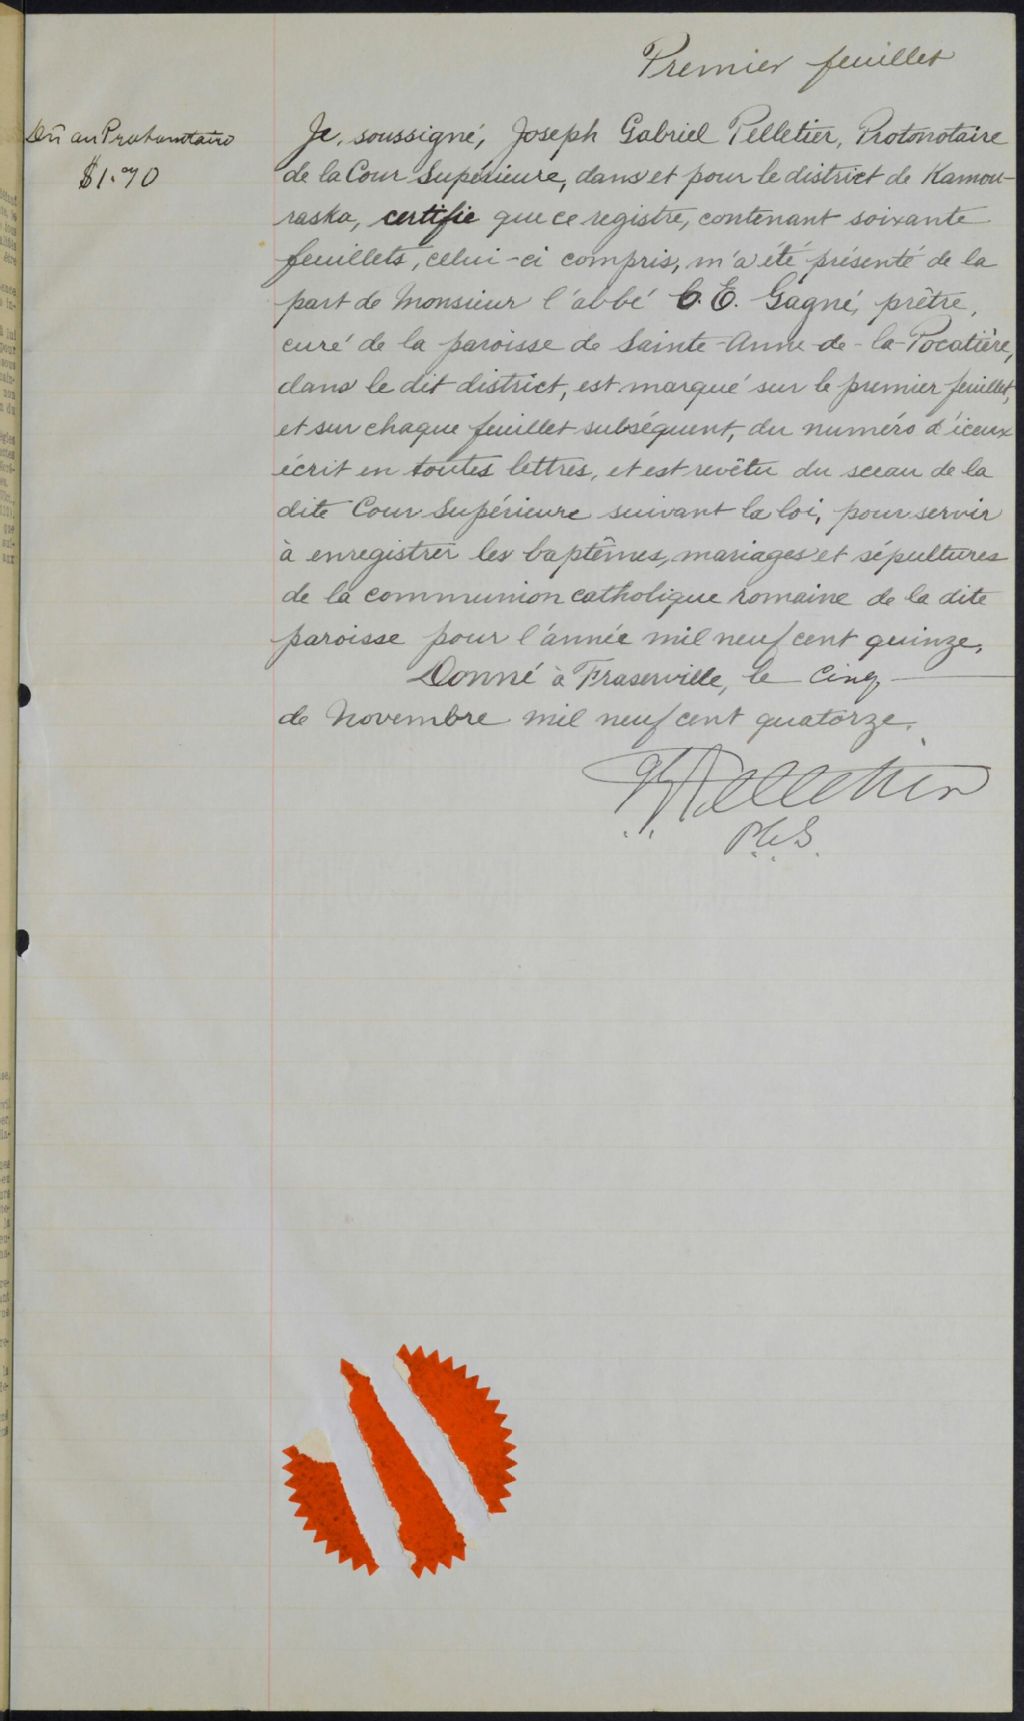 Premier feuillet
Dû au Protonotaire
$1.70
Je, soussigné, Joseph Gabriel Pelletier, Protonotaire
de la Cour Supérieure, dans et pour le district de Kamou-
raska, certifie que ce registre, contenant soixante
feuillets, celui-ci compris, m'a été présenté de la
part de Monsieur l'abbé C. E. Gagné, prêtre,
curé de la paroisse de Sainte-Anne-de-la-Pocatière,
dans le dit district, est marqué sur le premier feuillet,
et sur chaque feuillet subséquent, du numéro d'iceux
écrit en toutes lettres, et est revêtu du sceau de la
dite Cour Supérieure suivant la loi, pour servir
à enregistrer les baptêmes, mariages et sépultures
de la communion catholique romaine de la dite
paroisse pour l'année mil neuf cent quinze.
Donné à Fraserville, le cinq
de Novembre mil neuf cent quatorze.
Pelletier
P.C.S.